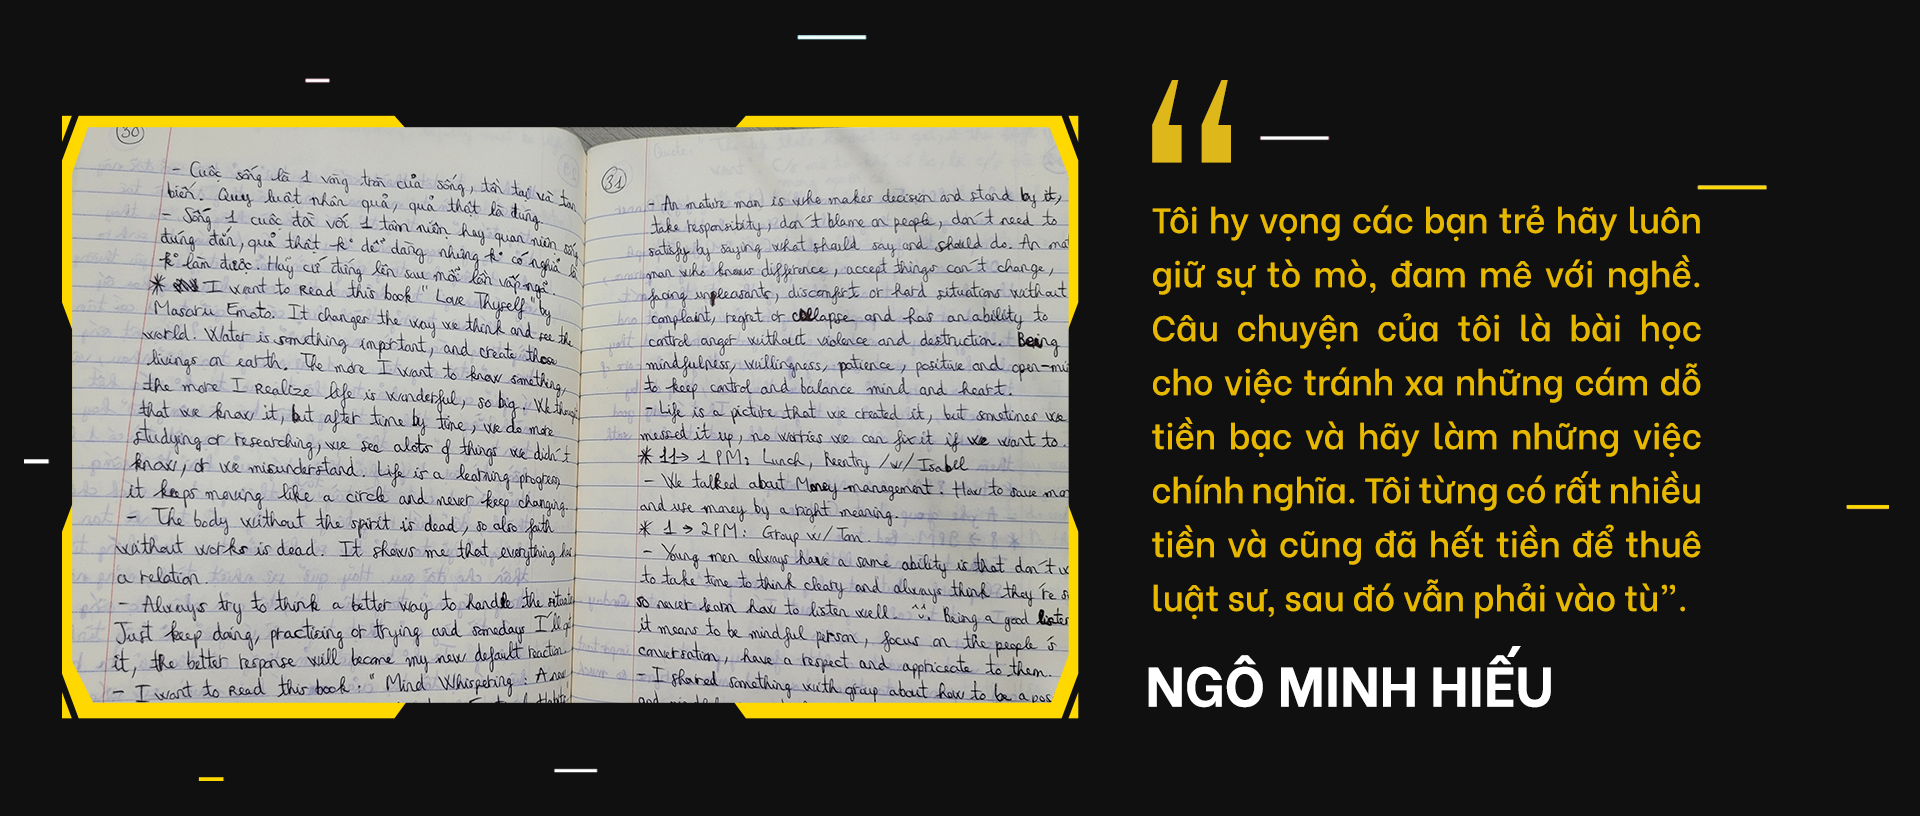 30
- Cuộc sống là 1 vòng tròn của sống, tồn tại và tan
biến. Quy luật nhân quả, quả thật là đúng.
- Sống 1 cuộc đời với 1 tâm niệm hay quan niệm sống
đúng đắn, quả thật k° dễ dàng nhưng k° có nghĩa là
k° làm được. Hãy cứ đứng lên sau mỗi lần vấp ngã.
* I want to Read this book "Love Thyself" by
Masaru Emoto. It changes the way we think and see the
world. Water is something important, and create those
livings on earth. The more I want to know something,
the more I Realize life is wonderful, so big. We thought
that we know it, but after time by time, we do more
studying or researching, we see alots of things we didn't
know, or we misunderstand. Life is a learning progress,
it keeps moving like a circle and never keep changing.
- The body without the spirit is dead, so also faith
without works is dead. It shows me that everything has
a relation.
- Always try to think a better way to handle the situation
Just keep doing, practicing or trying and somedays I'll get
it, the better response will become my new default reaction.
- I want to Read this book: "Mind Whispering: A new
31
- An mature man is who makes decision and stand by it,
take responsibility, don't blame on people, don't need to
satisfy by saying what should say and should do. An mat
man who knows difference, accept things can't change,
facing unpleasants, discomfort or hard situations without
complaint, regret or collapse and has an ability to
control anger without violence and destruction. Being
mindfulness, willingness, patience, positive and open-min
to keep control and balance mind and heart.
- Life is a picture that we created it, but sometimes we
messed it up, no worries we can fix it if we want to.
* 11→ 1 PM: Lunch, Reentry /w/ Isabel
- We talked about Money-management. How to save mon
and use money by a right meaning.
* 1 → 2PM: Group w/ Tom.
- Young men always have a same ability is that don't w
to take time to think cleary and always think they're s
so never learn how to listen well. Being a good listen
it means to be mindful person, focus on the people's
conversation, have a respect and appriceate to them.
- I shared something with group about how to be a pos
“
Tôi hy vọng các bạn trẻ hãy luôn
giữ sự tò mò, đam mê với nghề.
Câu chuyện của tôi là bài học
cho việc tránh xa những cám dỗ
tiền bạc và hãy làm những việc
chính nghĩa. Tôi từng có rất nhiều
tiền và cũng đã hết tiền để thuê
luật sư, sau đó vẫn phải vào tù”.
NGÔ MINH HIẾU